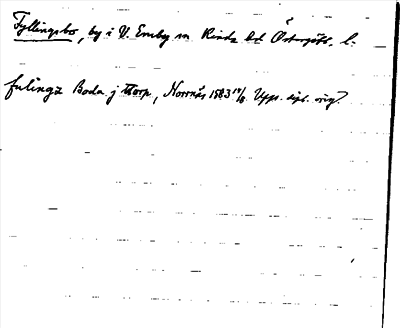 Fyllingsbo, by i V. Eneby sn Kinda hd Östergötl. l.
fulinga Boda j torp, Norrnäs 1583 Upps. dipl. orig.